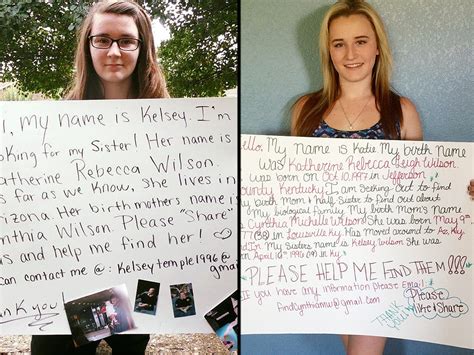 , my name is Kelsey. I'm
oking for my Sister! Her name is
atherine Rebecca Wilson.
s far as we know, she lives in
rizona. Her birthmothers name is
nthia Wilson. Please "Share"
us and help me find her!
can contact me @: Kelseytemple1996@
gmai
hank you!
Hello, My name is Katie My birth name
was Katherine Rebecca Leigh Wilson.
I was born on Oct 10, 1997 in Jefferson
County Kentucky. I am seeking out to find
my birth Mom & half Sister to find out about
my biological family. My birth Mom's name
is Cynthia Michelle Wilson She was born May 9
in Louisville Ky. Has moved around to Az, Ky,
and In. My Sisters name is Kelsey Wilson She was
born April 10th 1996 in Ky.
PLEASE HELP ME FIND THEM!!!
If you have any information Please Email
findcynthiamw@gmail.com
THANK YOU!
Please
like & Share